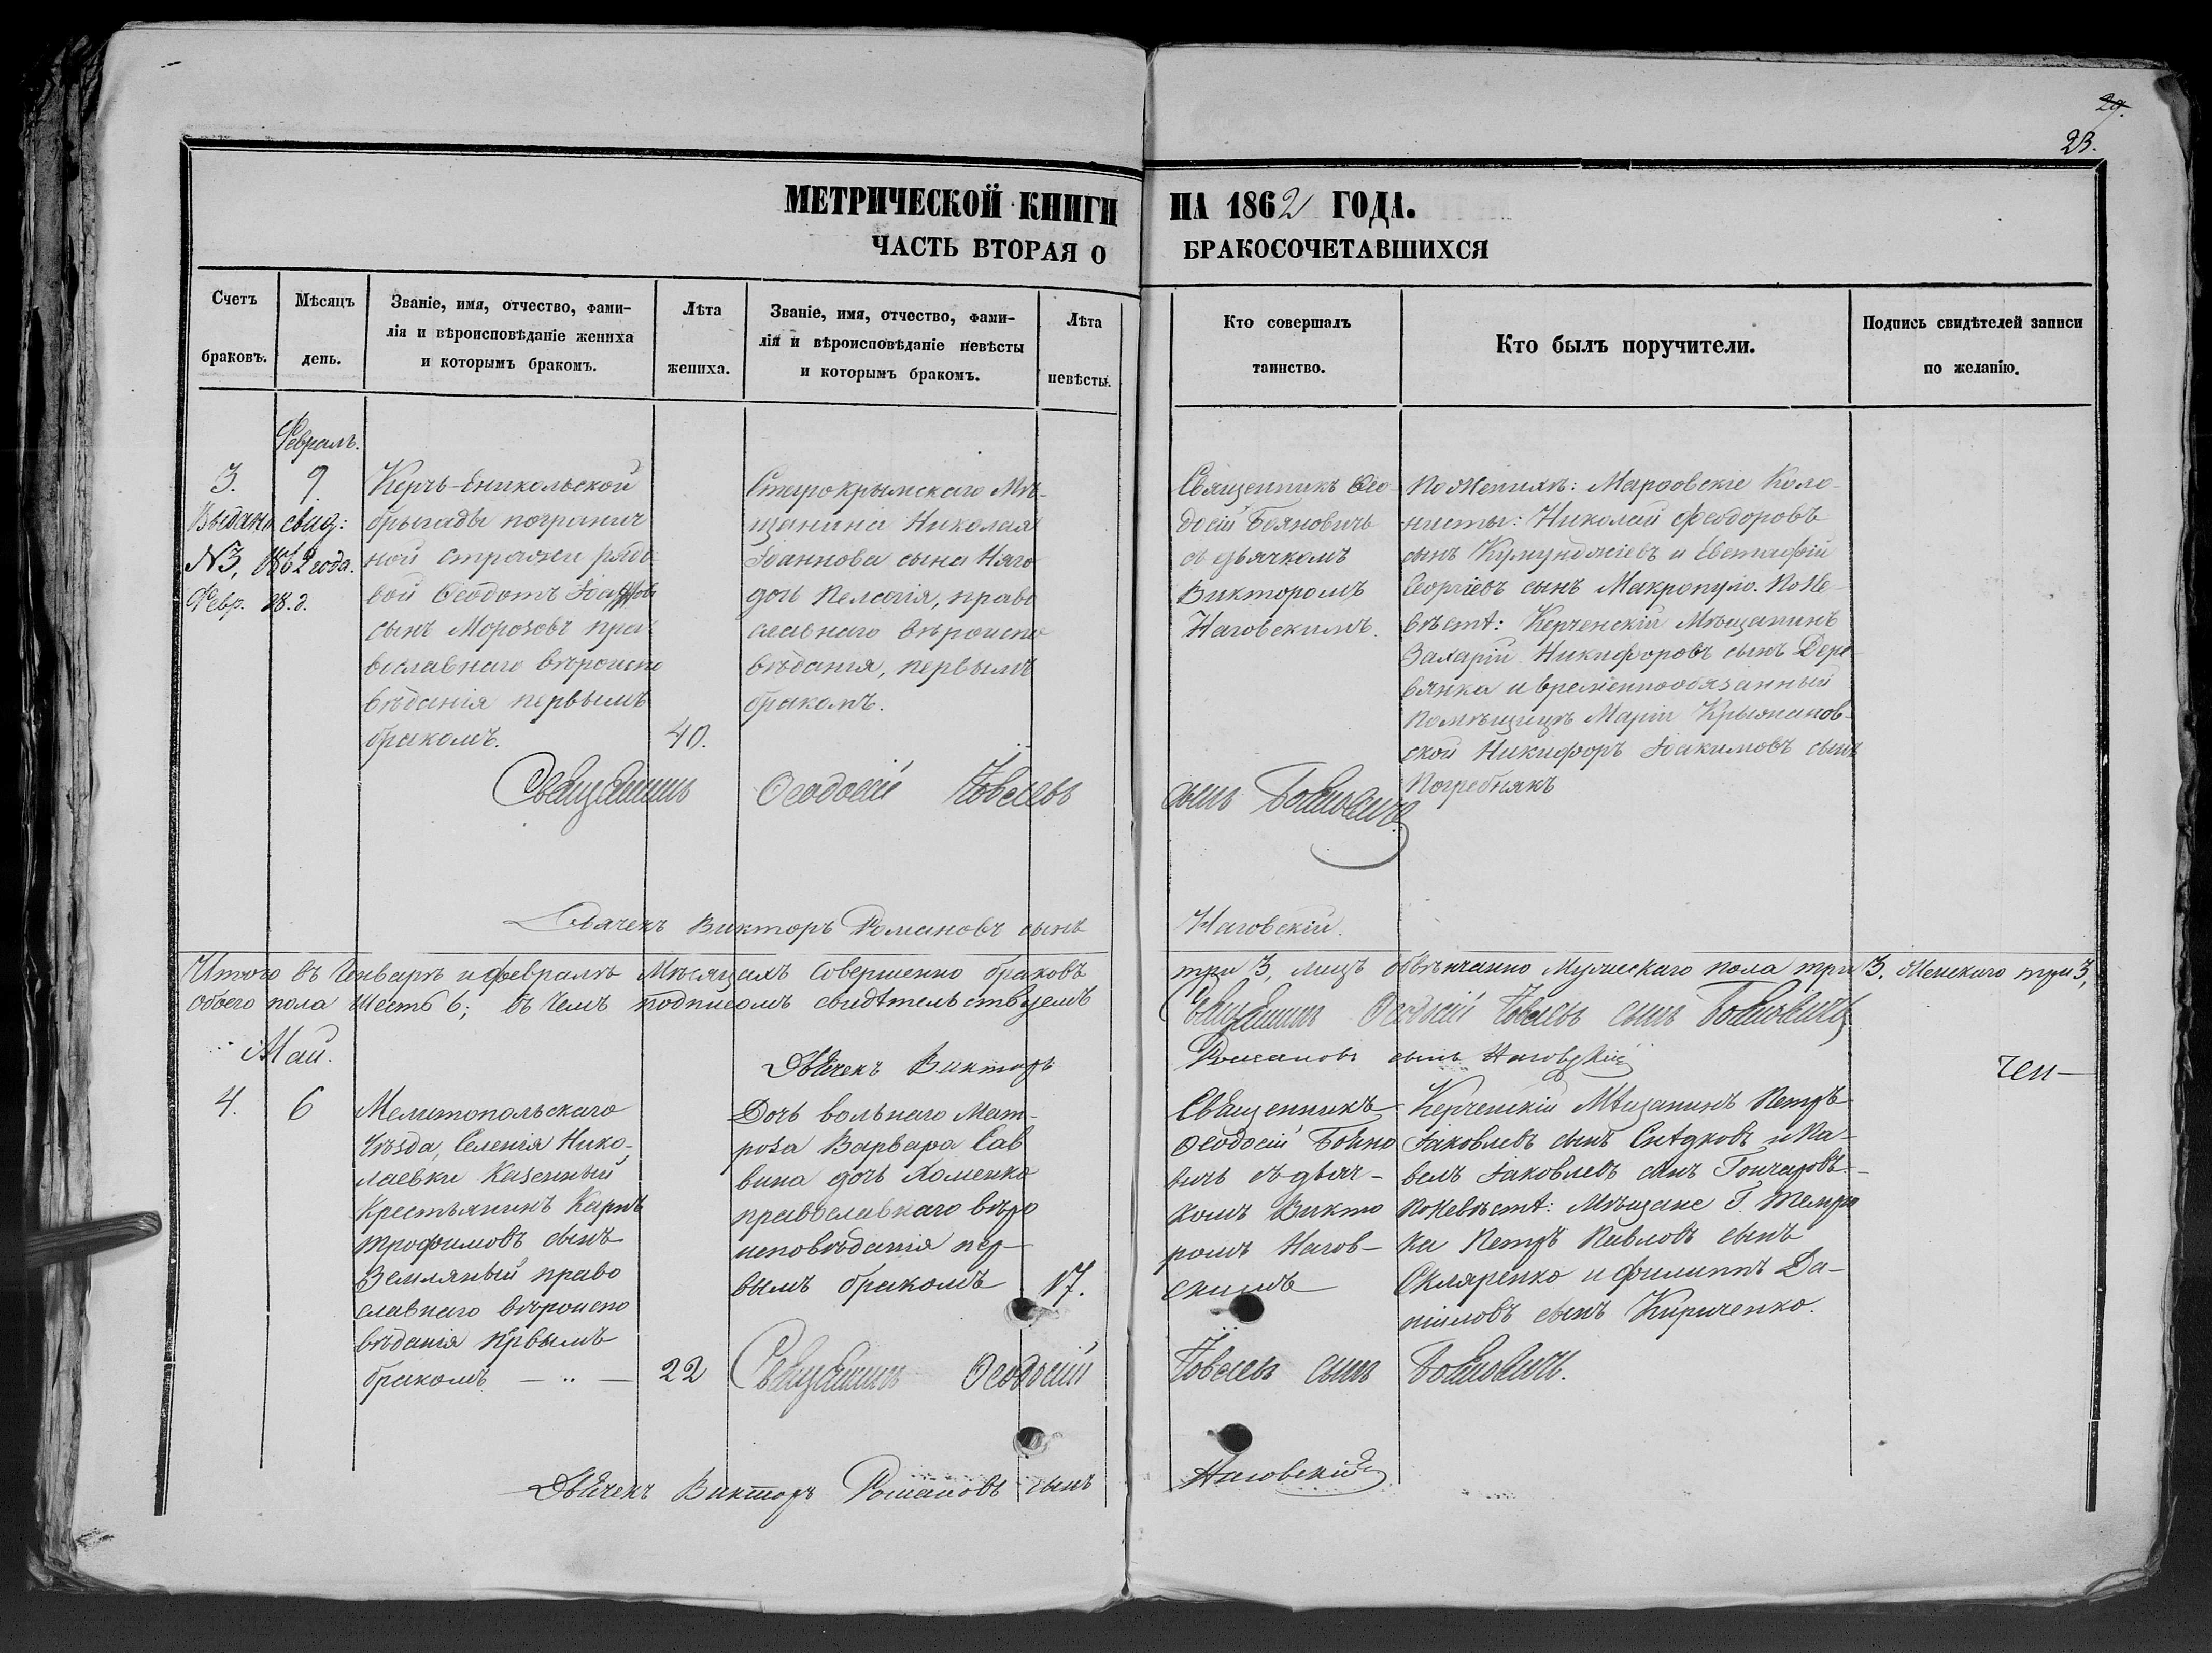 29.
23.
МЕТРИЧЕСКОЙ КНИГИ НА 1862 ГОДА.
ЧАСТЬ ВТОРАЯ О БРАКОСОЧЕТАВШИХСЯ
Счетъ браковъ.
Мѣсяцъ день.
Званіе, имя, отчество, фами-
лія и вѣроисповѣданіе жениха
и которымъ бракомъ.
Лѣта жениха.
Званіе, имя, отчество, фами-
лія и вѣроисповѣданіе невѣсты
и которымъ бракомъ.
Лѣта невѣсты.
Кто совершалъ
таинство.
Кто былъ поручители.
Подпись свидѣтелей записи
по желанію.
Февраль.
3. 9
Выдано свид:
N3, 1862 года.
Февр. 28. д.
Керчь-Еникольской
бригады погранич
ной стражи рядо
вой Ѳеодотъ
сынъ Морозовъ пра
вославнаго вѣроиспо
вѣданія первымъ
бракомъ.
40.
Старокрымскаго Мѣ-
щанина Николая
Іоаннова сына Наго
дочь Пелагія, право
славнаго вѣроиспо
вѣданія, первымъ
бракомъ.
Священникъ Ѳео-
досій Бояновичъ
съ дьячкомъ
Викторомъ
Наговскимъ.
По Женихѣ: Марфовскіе Коло-
нисты: Николай Феодоровъ
сынъ Кумунджіевъ и Евстафій
Георгіевъ сынъ Макропуло. По Не-
вѣстѣ: Керченскій Мѣщанинъ
Захарій Никифоровъ сынъ Дере
вянка и временнообязанный
помѣщицѣ Маріи Крыжанов-
ской Никифоръ Іакимовъ сынъ
Погребнякъ
Священникъ Ѳеодосій Іовлевъ сынъ Бояновичъ
Дьячекъ Викторъ Романовъ сынъ Наговскій.
Итого въ Генварѣ и февралѣ Мѣсяцахъ Совершенно браковъ три 3, лицъ обвѣнчанно Мужескаго пола три 3. Женскаго три 3,
Обоего пола Шесть 6; въ чемъ подписомъ свидѣтельствуемъ Священникъ Ѳеодосій Іовлевъ сынъ Бояновичъ
Дьячекъ Викторъ Романовъ сынъ Наговскій
Май.
4. 6
Мелитопольскаго
Уѣзда, Селенія Нико-
лаевки Казенный
Крестьянинъ Карпъ
Трофимовъ сынъ
Земляный право
славнаго вѣроиспо
вѣданія первымъ
бракомъ — „ —
22
Дочь вольнаго Мат-
роза Варвара Сав
вина дочь Хоменко
православнаго вѣро
исповѣданія пер-
вымъ бракомъ
17.
Священникъ
Ѳеодосій Бояно
вичъ съ дьяч-
комъ Викто
ромъ Нагов-
скимъ
Керченскій Мѣщанинъ Петръ
Іаковлевъ сынъ Снѣдковъ и Па-
велъ Іаковлевъ сынъ Гончаровъ.
По Невѣстѣ: Мѣщане Г. Темрю
ка Петръ Павловъ сынъ
Скляренко и Филиппъ Да-
ніиловъ сынъ Кириченко.
Священникъ Ѳеодосій Іовлевъ сынъ Бояновичъ.
Дьячекъ Викторъ Романовъ сынъ Наговскій